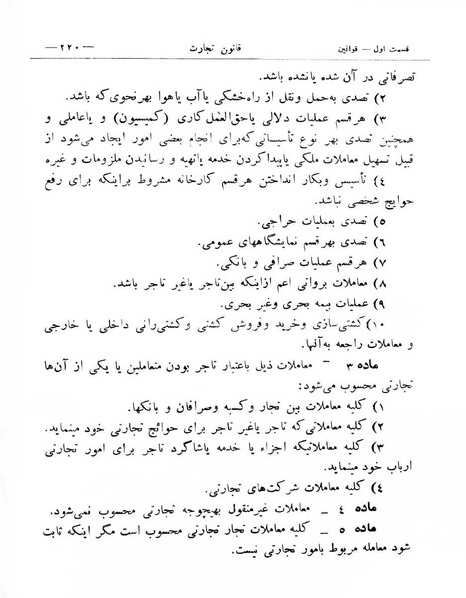 قسمت اول — قوانین
قانون تجارت
— ۲۲۰ —
تصرفاتی در آن شده یانشده باشد.
۲) تصدی به‌حمل ونقل از راه‌خشکی یاآب یاهوا بهرنحوی‌که باشد.
۳) هرقسم عملیات دلالی یاحق‌العمل‌کاری (کمیسیون) و یاعاملی و
همچنین تصدی بهر نوع تأسیساتی‌که‌برای انجام بعضی امور ایجاد می‌شود از
قبیل تسهیل معاملات ملکی یاپیداکردن خدمه یاتهیه و رسانیدن ملزومات و غیره
٤) تأسیس وبکار انداختن هرقسم کارخانه مشروط براینکه برای رفع
حوایج شخصی نباشد.
۵) تصدی بعملیات حراجی.
۶) تصدی بهرقسم نمایشگاههای عمومی.
۷) هرقسم عملیات صرافی و بانکی.
۸) معاملات برواتی اعم ازاینکه بین‌تاجر یاغیر تاجر باشد.
۹) عملیات بیمه بحری وغیر بحری.
۱۰) کشتی‌سازی وخرید وفروش کشتی وکشتی‌رانی داخلی یا خارجی
و معاملات راجعه به‌آنها.
ماده ۳ – معاملات ذیل باعتبار تاجر بودن متعاملین یا یکی از آن‌ها
تجارتی محسوب می‌شود:
۱) کلیه معاملات بین تجار وکسبه وصرافان و بانکها.
۲) کلیه معاملاتی‌که تاجر یاغیر تاجر برای حوائج تجارتی خود مینماید.
۳) کلیه معاملاتیکه اجزاء یا خدمه یاشاگرد تاجر برای امور تجارتی
ارباب خود مینماید.
٤) کلیه معاملات شرکت‌های تجارتی.
ماده ٤ – معاملات غیرمنقول بهیچوجه تجارتی محسوب نمی‌شود.
ماده ۵ – کلیه معاملات تجار تجارتی محسوب است مگر اینکه ثابت
شود معامله مربوط بامور تجارتی نیست.